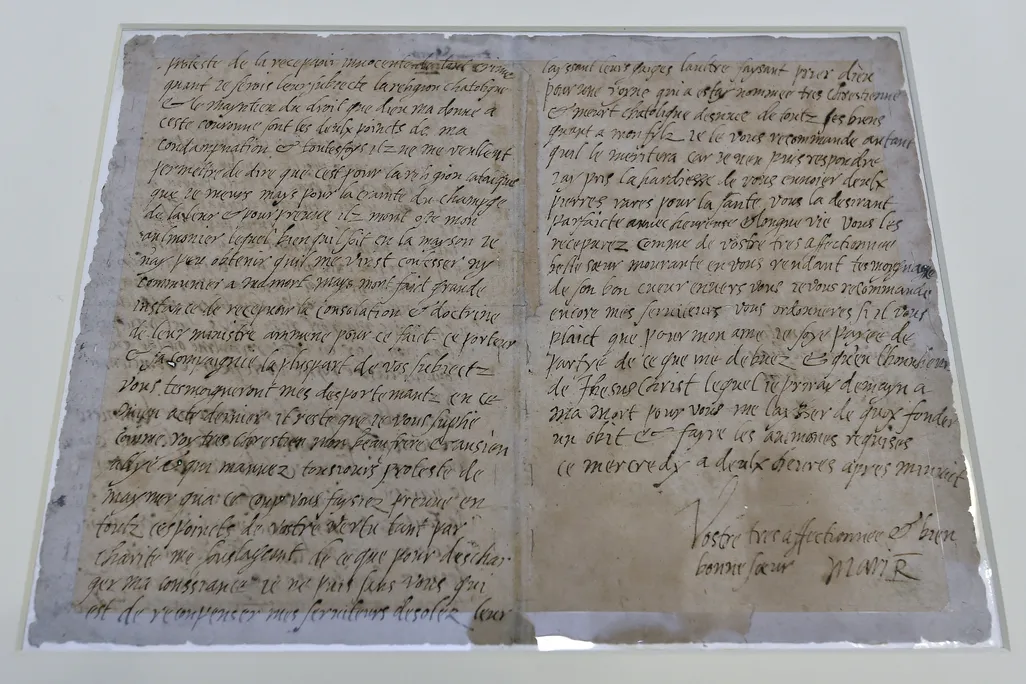 proteste de la recepvoir innocente de tout crime
quant je serois leur subjecte la religion chatolique
& le mayntien du droit que dieu ma donne a
ceste couronne sont les deulx poincts de ma
condampnation & toutesfoys ilz ne me veullent
permettre de dire que cest pour la religion catolique
que je meurs mays pour la crainte du champge
de la leur & pour preuve ilz mont oste mon
aulmonier lequel bien quil soit en la mayson je
nay peu obtenir quil me vinst confesser ny
communier a ma mort mays mont faict grande
instance de recepvoir la consolation & doctrine
de leur ministre ammene pour ce faict ce porteur
& sa compaignie la pluspart de vos subjectz
vous tesmoigneront mes desportemantz en ce
mien acte dernier il reste que je vous suplie
comme roy tres chrestien mon beau frere & ansien
allye & qui mavvez tousjours proteste de
maymer qua ce coup vous faysiez preuve en
toutz ces poincts de vostre vertu tant par
charite me soulageant de ce que pour deschar
ger ma conssiance je ne puis sans vous qui
est de recompenser mes serviteurs desolez leur
layssant leurs gaiges laultre faysant prier dieu
pour une royne qui a estay nommee tres chrestienne
& meurt chatolique desnuee de toutz ses biens
quant a mon filz je le vous recommande autant
quil le meritera car je nen puis respondre
jay pris la hardiesse de vous envoier deulx
pierres rares pour la sante vous la desirant
parfaicte avvec heureuse & longue vie vous les
recepvrez comme de vostre tres affectionnee
belle sœur mourante en vous rendant tesmoygnage
de son bon cueur envers vous je vous recommande
encore mes serviteurs vous ordonneres si il vous
plaict que pour mon ame je soye payee de
partye de ce que me debvez & quen lhonneur
de Jhesus Christ lequel je priray demayn a
ma mort pour vous me laisser de quoy fonder
un obit & fayre les aumones requises
ce mercredy a deulx heures apres minuict
Vostre tres affectionnee & bien
bonne sœur MARI R